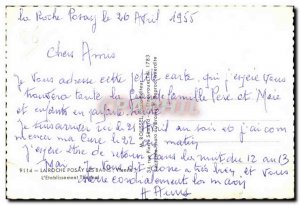 La Roche Posay le 26 Avril 1955
Chers Amis
Je vous adresse cette jolie carte, qui j'espère vous
trouvera toute la famille Père et Mère
et enfants en parfaite
Je suis arrivé ici le 21 au soir et j'ai com
mencé ma Cure le 22 matin
j'espère être de retour dans la nuit du 12 au 13
Mai. Je vous dit donc à très bien et vous
serre cordialement les mains
9114 - LA ROCHE POSAY LES BAINS
L'Etablissement Thermal
1783